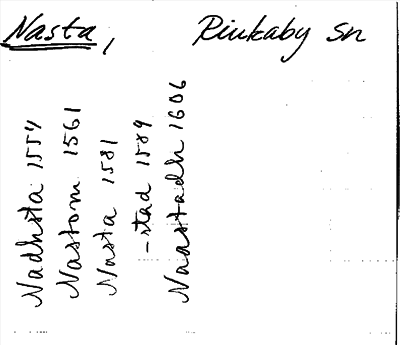 Nasta, Rinkaby sn
Nadhsta 1557
Nastom 1561
Nasta 1581
-stad 1589
Naastadh 1606